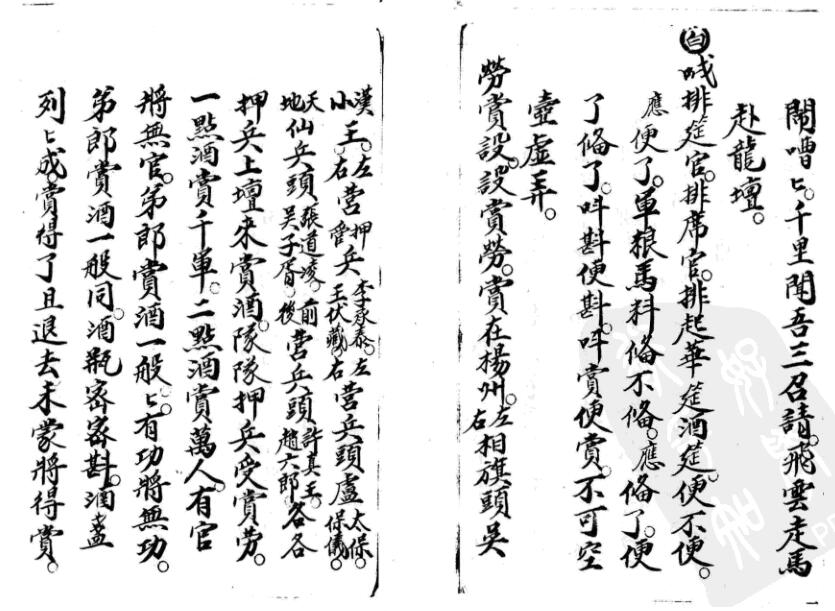 鬧嘈〻。千里聞吾三召請。飛雲走馬
赴龍壇。
白 喊排筵官。排席官。排起華筵酒筵便不便。
應便了。軍粮馬料俻不俻。應俻了。便
了俻了。呌斟便斟。呌賞便賞。不可空
壺虛弄。
勞賞設。設賞勞。賞在楊州。左右相旗頭吳
漢小王。左右营押管兵李承泰。王伏藏。左右营兵頭盧太保。保儀。
天地仙兵頭張道凌。吳子胥。前後营兵頭許真王。趙六郎。各各
押兵上壇來賞酒。隊隊押兵受賞勞。
一點酒賞千軍。二點酒賞萬人。有官
將無官。弟郎賞酒一般〻。有功將無功。
弟郎賞酒一般同。酒瓶密密斟。酒盞
列〻成。賞得了且退去未蒙將得賞。